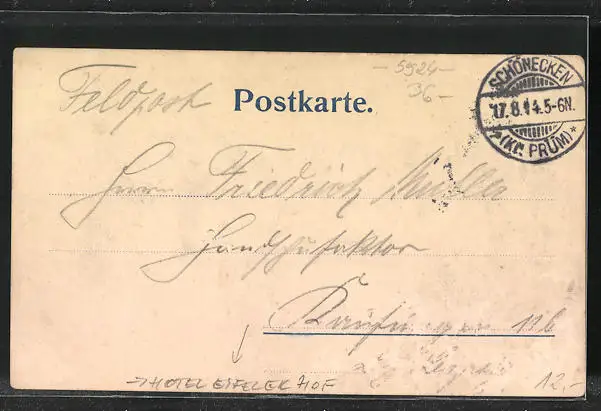 Feldpost
Postkarte.
- 5924 -
36 -
SCHÖNECKEN
17.8.14.5-6N.
*(KR. PRÜM)*
Herrn Friedrich Müller
Kaufungen
→ HOTEL EIFELER HOF
12,-